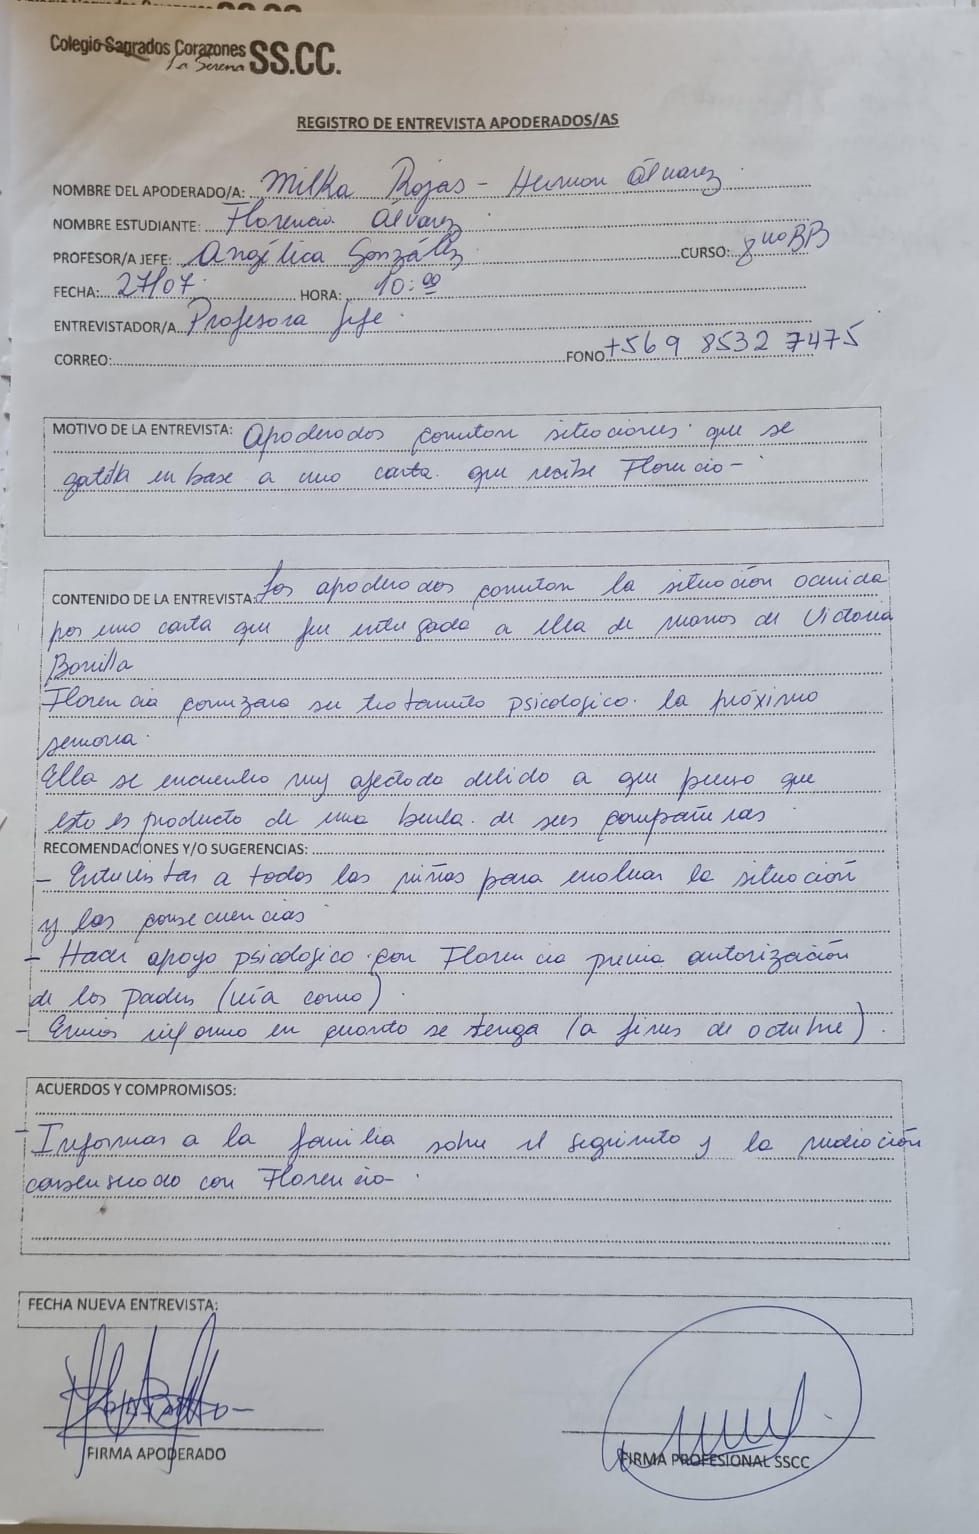 Colegio Sagrados Corazones SS.CC.
La Serena
REGISTRO DE ENTREVISTA APODERADOS/AS
NOMBRE DEL APODERADO/A: Milka Rojas - Hernan Álvarez
NOMBRE ESTUDIANTE: Florencia Álvarez
PROFESOR/A JEFE: Angélica González CURSO: 8
FECHA: 27/07 HORA: 10:00
ENTREVISTADOR/A Profesora jefe.
CORREO: FONO +569 8532 7475
MOTIVO DE LA ENTREVISTA: Apoderados comentan situaciones que se
gatilla en base a una carta que recibe Florencia-
CONTENIDO DE LA ENTREVISTA: Los apoderados comentan la situación ocurrida
por una carta que fue entregada a ella de manos de Victoria
Bonilla
Florencia comenzara su tratamiento psicologico la próximo
semana.
Ella se encuentra muy afectada debido a que piensa que
esto es producto de una burla de sus compañeras
RECOMENDACIONES Y/O SUGERENCIAS:
- Entrevistar a todas las niñas para evaluar la situación
y las consecuencias
- Hacer apoyo psicologico con Florencia previa autorización
de los padres (vía correo)
- Enviar informe en cuanto se tenga (a fines de octubre).
ACUERDOS Y COMPROMISOS:
- Informar a la familia sobre el seguimiento y la mediación
consensuado con Florencia-
FECHA NUEVA ENTREVISTA:
FIRMA APODERADO
FIRMA PROFESIONAL SSCC